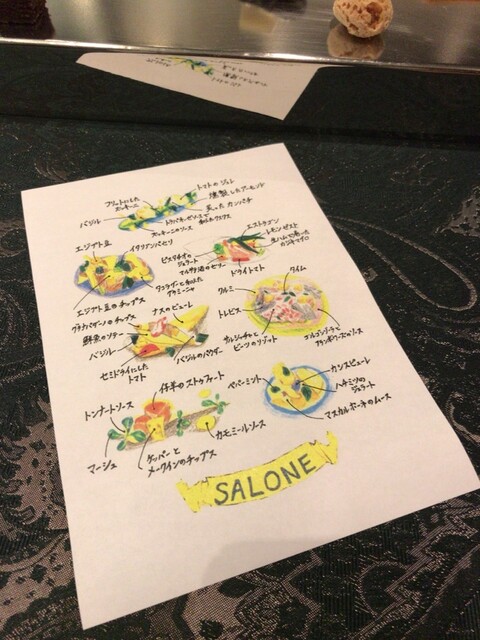 トマトのジュレ
フリットにした
ズッキーニ
燻製したアーモンド
炙ったカンパチ
バジル
トラパネーゼソースで
ズッキーニのソース
エストラゴン
レモンゼスト
エジプト豆
イタリアンパセリ
ピスタチオの
ジェラート
生ハムで巻いた
カジキマグロ
マルサラ酒のゼリー
ドライトマト
エジプト豆のチップス
グラナパダーノのチップス
クルミ
タイム
ナスのピューレ
野菜のソテー
トレビス
バジル
バジルのパウダー
サルシッチャと
ビーツのリゾット
ゴルゴンゾーラと
セミドライにした
トマト
仔羊のストゥファート
ペパーミント
カシスピューレ
ハチミツの
ジェラート
トンナートソース
マスカルポーネのムース
マーシュ
ケッパーと
メークインのチップス
カモミールソース
SALONE